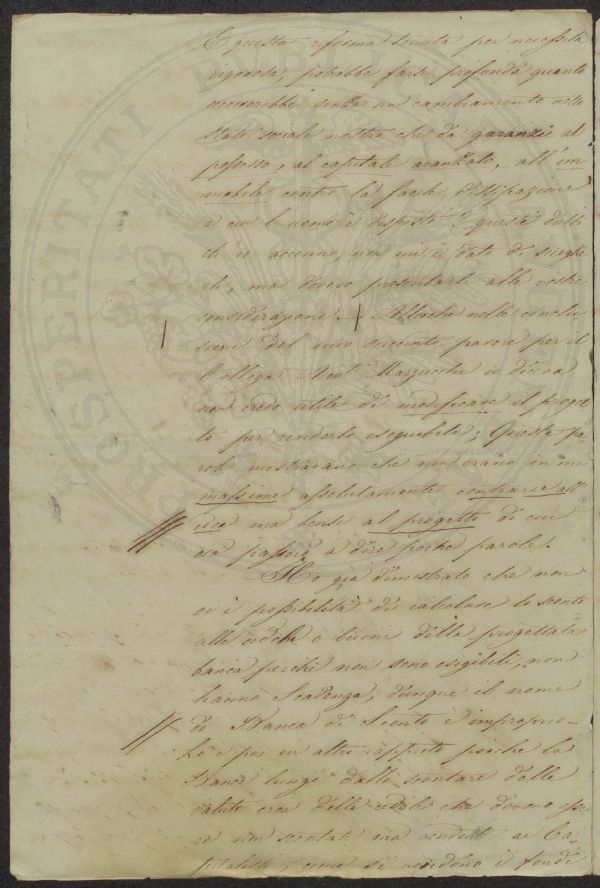 E questa riforma sinita per necessità
rigorosa, potrebbe farsi profonda quanto
occorrerebbe senza un cambiamento nello
Stato sociale nostro che dà garanzie al
possesso, al capitale avanzato, all'im
mobile contro la facile dissipazione
a cui l'uomo è disposto? questi dubbi
ch'io accenno, non mi è dato di scioglie
re, ma devevo presentarli alle vostre
considerazioni. Allorchè nella conclu
sione del mio succinto parere per il
Collega Marzucchi io diceva
non credo utile di modificare il proget
to per renderlo eseguibile; Queste pa
role mostravano che non erano in me
massime assolutamente contrarie all'
idea ma bensì al progetto di cui
ora passerò a dire poche parole.
Ho già dimostrato che non
vi è possibilità di calcolare lo sconto
alle cedole o buoni della progettata
banca perchè non sono esigibili, non
hanno Scadenza, dunque il nome
di Banca di Sconto è improprio
Lo è poi in altro rapporto perchè la
Banca lungi dallo scontare delle
valute crea delle cedole che devono esse
re non scontate ma vendute ai Ca
pitalisti, come si vendono i fondi
PROSPERITATI PUBLICAE